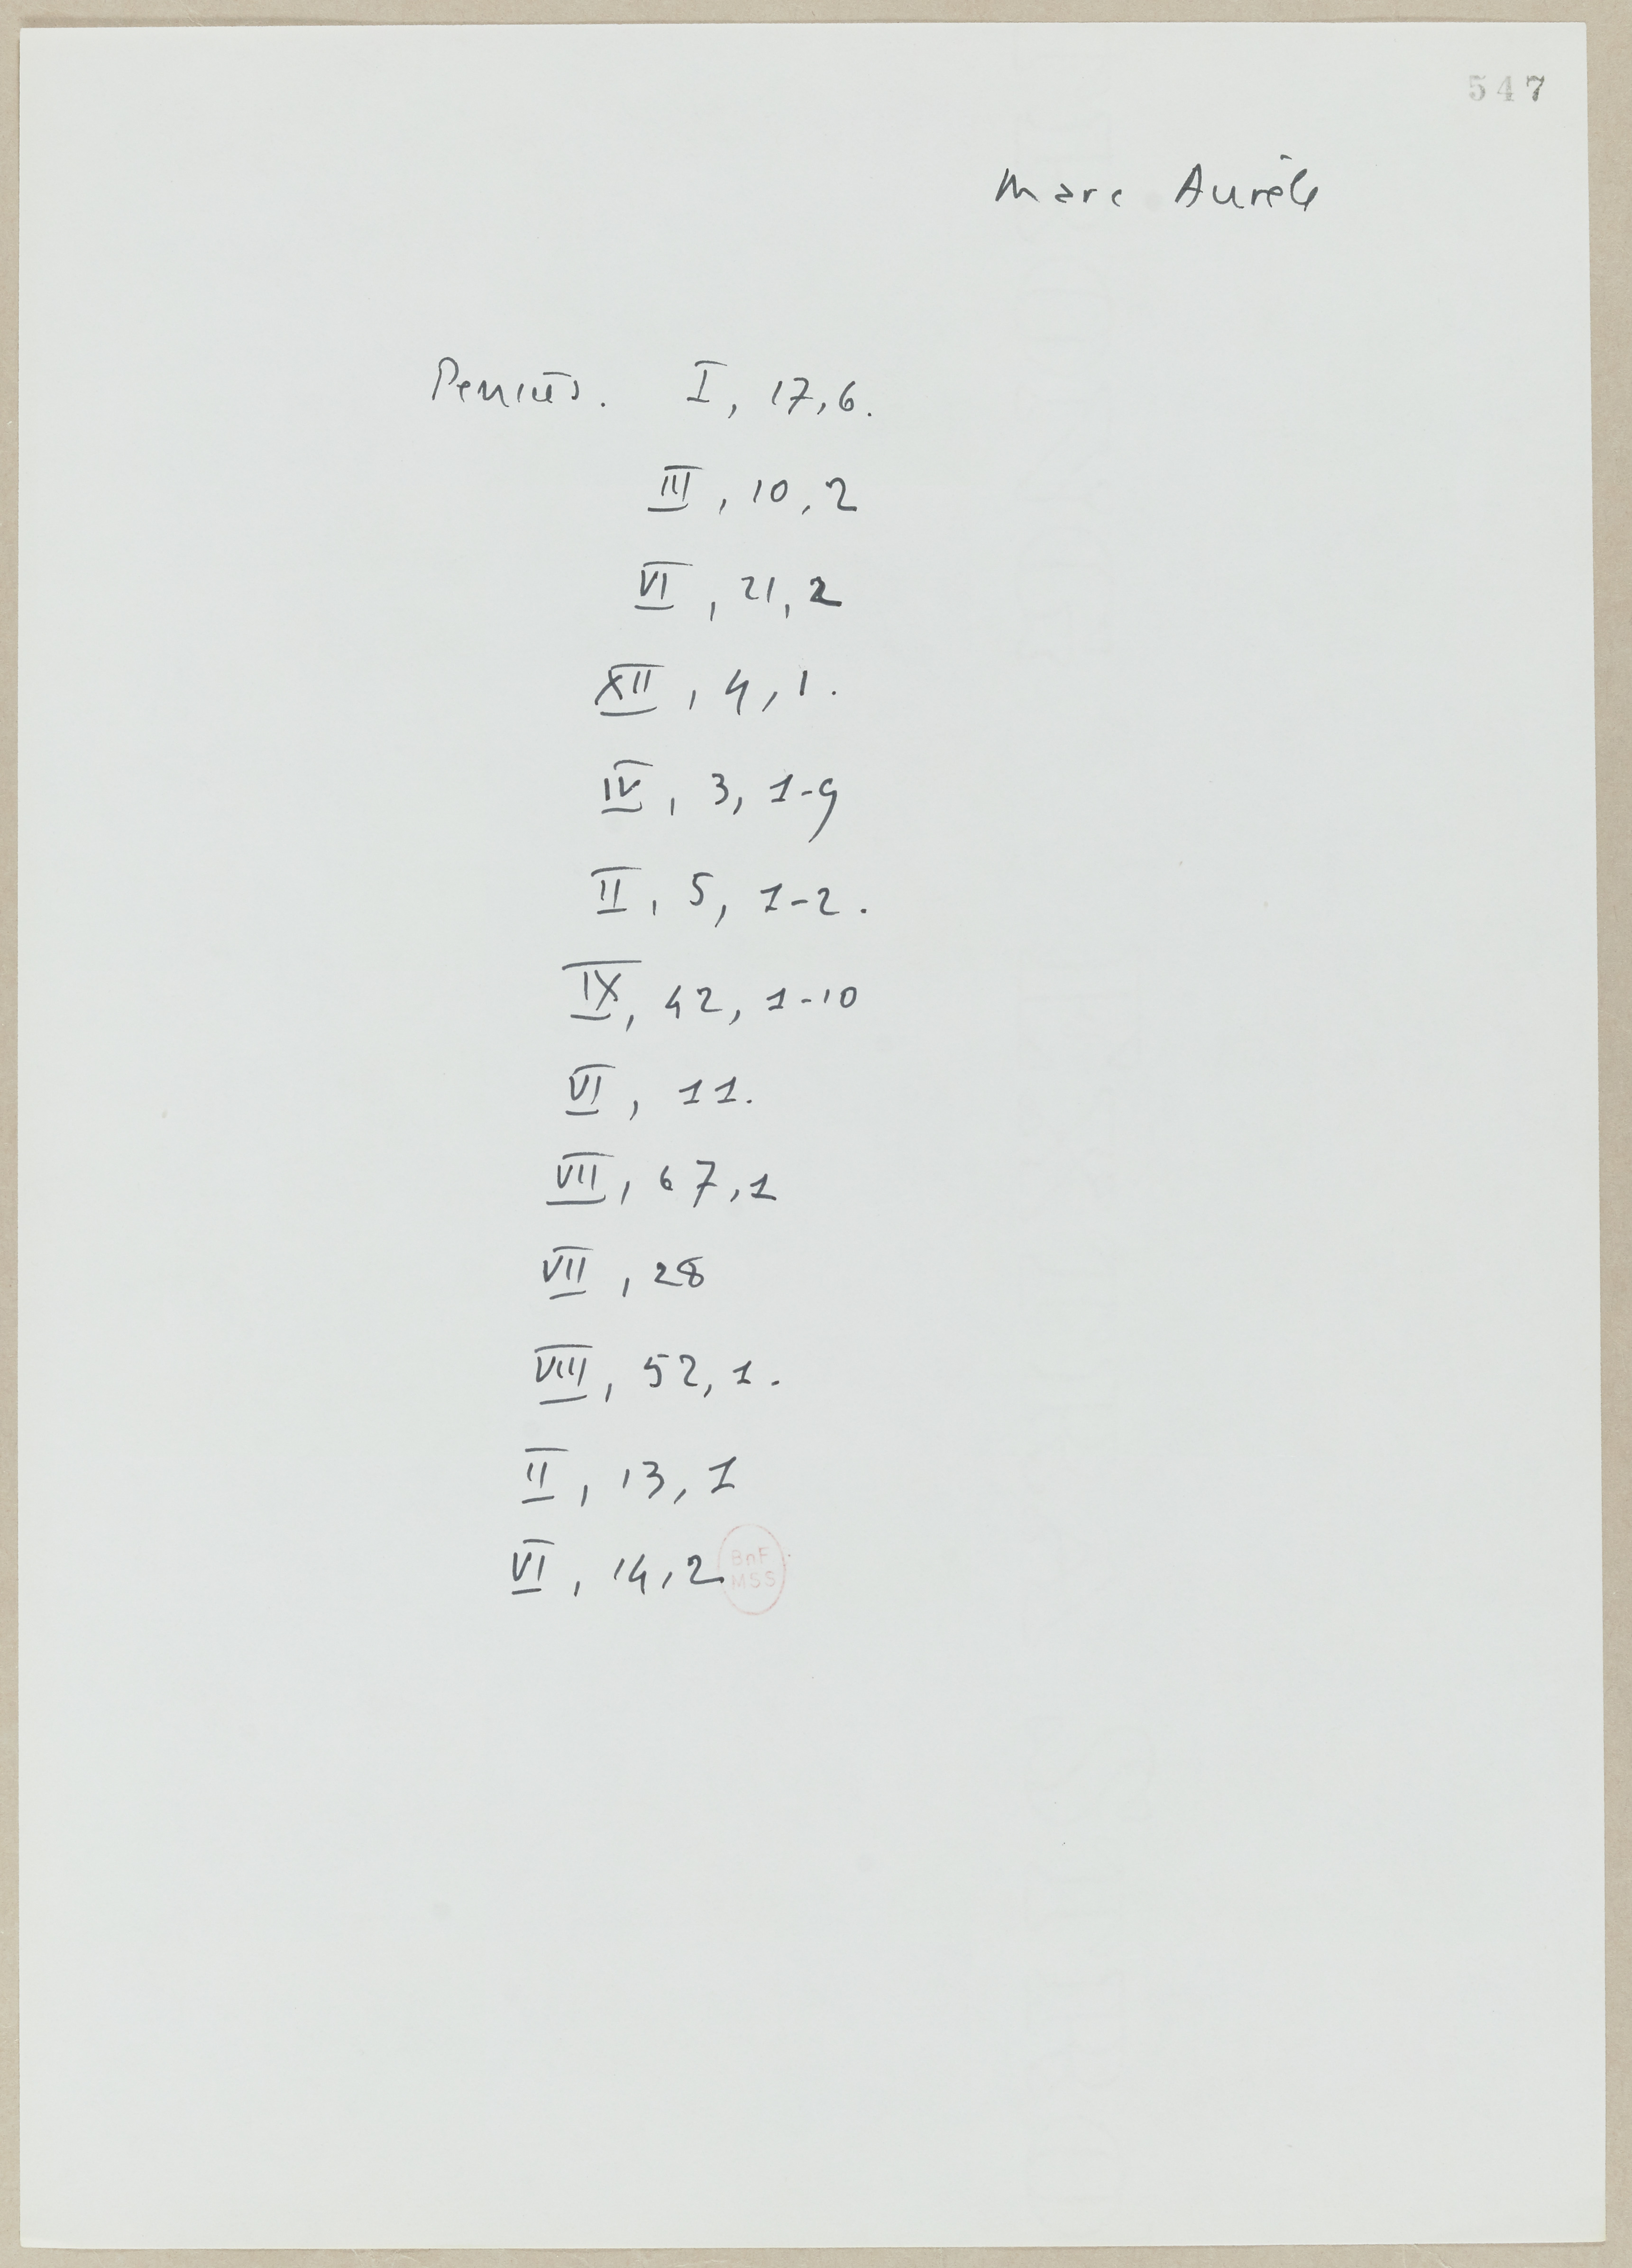 547
Marc Aurèle
Pensées. I, 17,6.
III, 10, 2
VI, 21, 2
XII, 4, 1.
IV, 3, 1-9
II, 5, 1-2.
IX, 42, 1-10
VI, 11.
VII, 67, 1
VII, 28
VIII, 52, 1.
II, 13, 1
VI, 14, 2
BnF
MSS